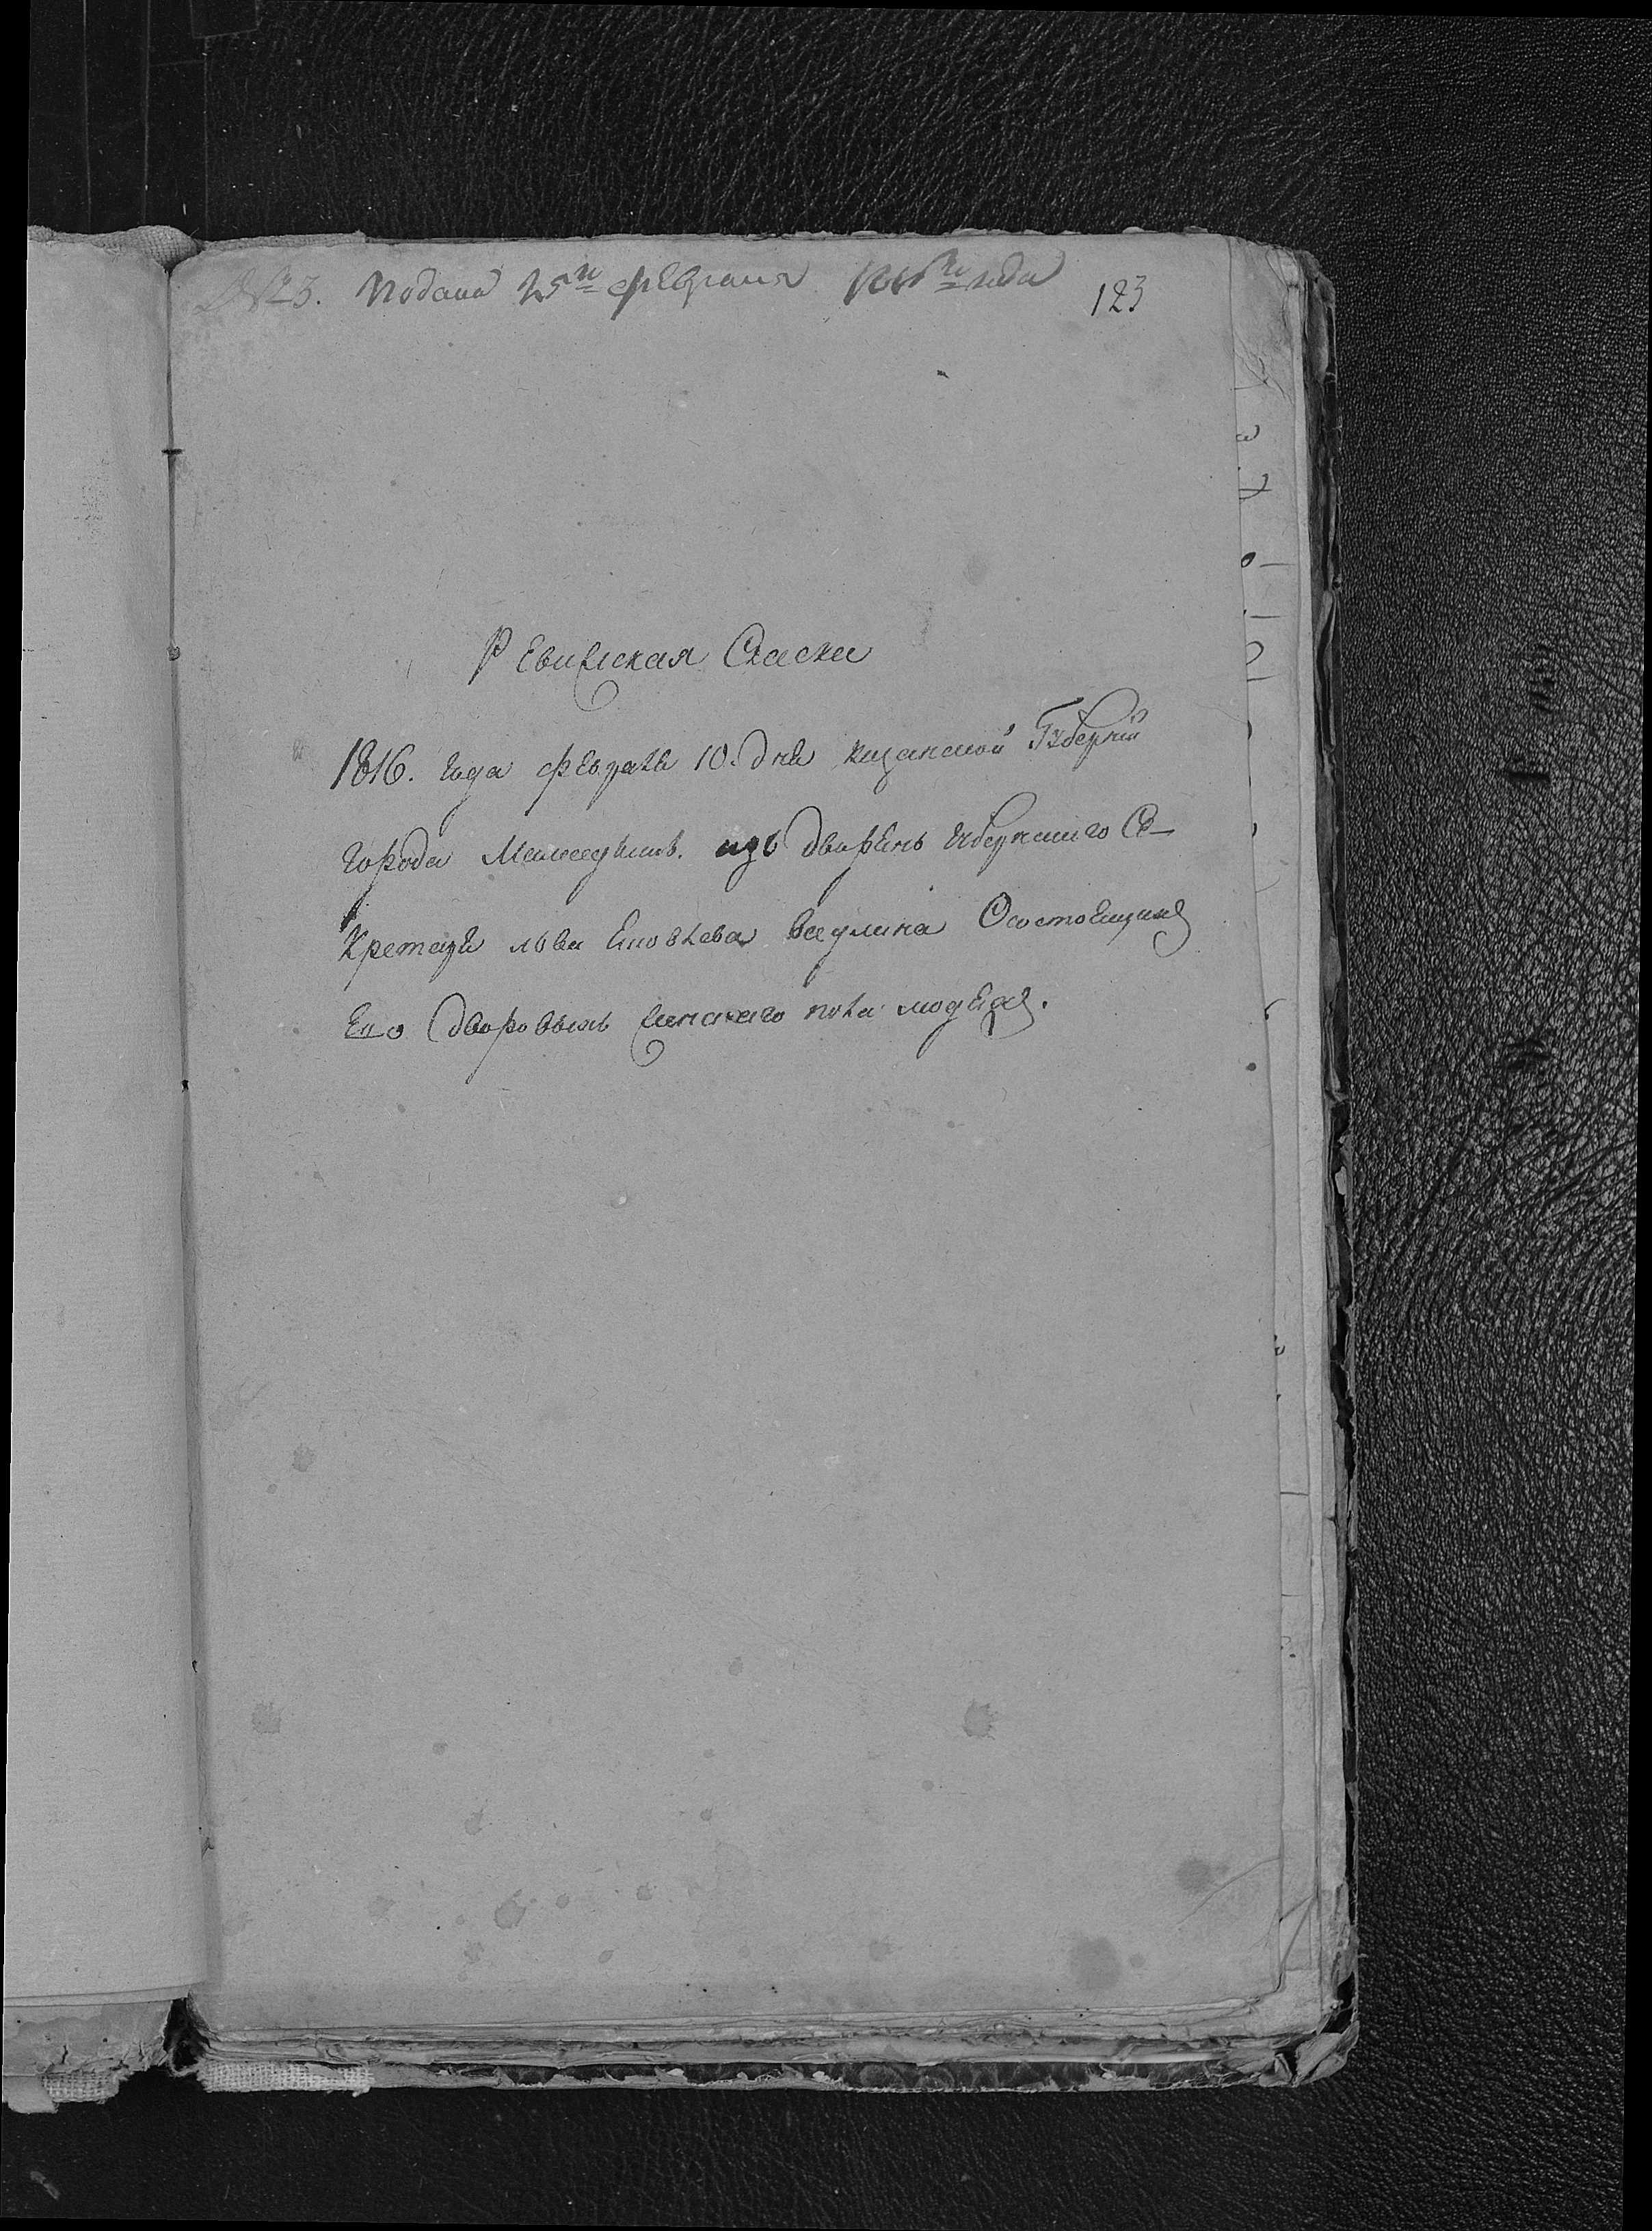 № 3. Подана 25го февраля 1816го года 123
Ревизская Скаска
1816. года февраля 10. дня казанской Губернїи
города Мамадыша. изъ дворянъ губернского Се-
кретаря льва Яковлева О состоящихъ
Его дворовыхъ женскаго пола людяхъ.